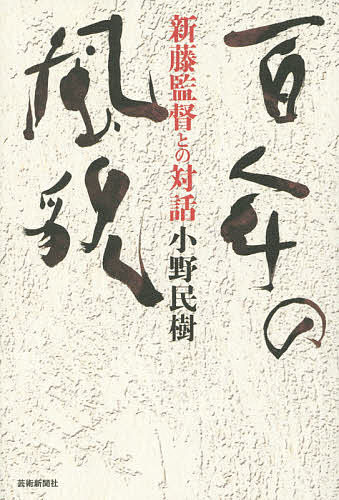 百年の
風貌
新藤監督との対話
小野民樹
芸術新聞社